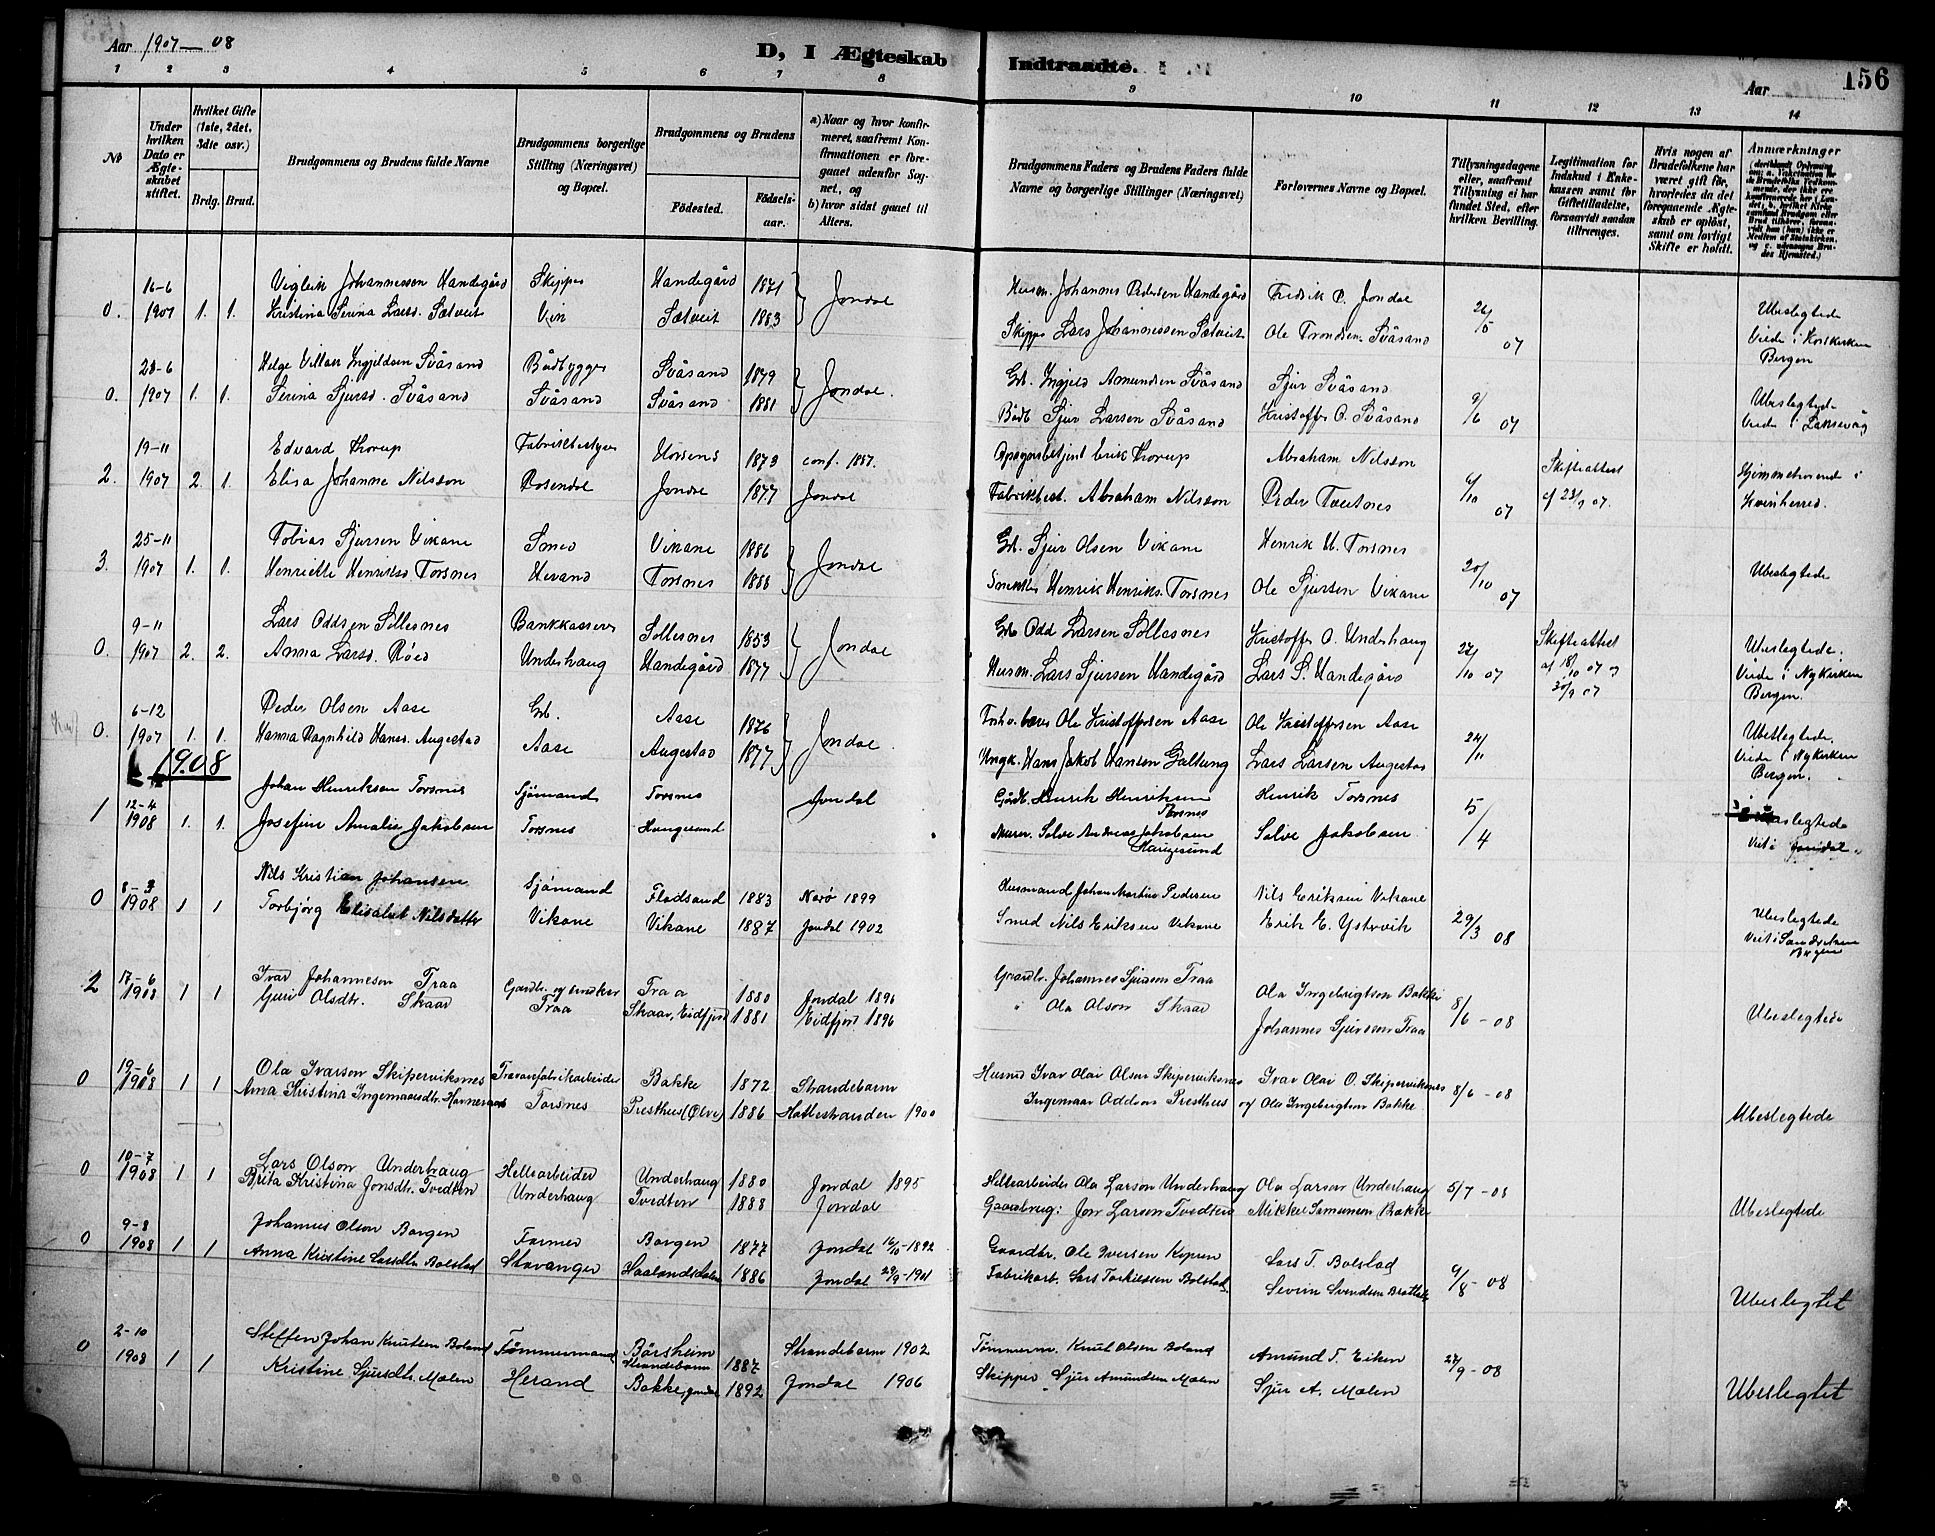 Aar 1907 — 08
D, I Ægteskab Indtraadte.
Aar 156
1 2 3 4 5 6 7 8 9 10 11 12 13 14
No
Under hvilken Dato er Ægteskabet stiftet.
Hvilket Gifte (1ste, 2det, 3die osv.)
Brdg. Brud.
Brudgommens og Brudens fulde Navne
Brudgommens borgerlige Stilling (Næringsvei) og Bopæl.
Brudgommens og Brudens
Fødested. Fødselsaar.
a) Naar og hvor konfirmeret, saafremt Konfirmationen er foregaaet udenfor Sognet, og
b) hvor sidst gaaet til Alters.
Brudgommens Faders og Brudens Faders fulde Navne og borgerlige Stillinger (Næringsvei)
Forlovernes Navne og Bopæl.
Tillysningsdagene eller, saafremt Tillysning ei har fundet Sted, efter hvilken Bevilling.
Legitimation for Indskud i Enkekassen samt for Giftetilladelse, forsaavidt saadan tiltrænges.
Hvis nogen af Brudefolkene har været gift før, hvorledes da det foregaaende Ægteskab er opløst, samt om lovligt Skifte er holdt.
Anmærkninger
16-6 Vigleik Johannessen Handegård Skipper Handegård 1871 Jondal Husm. Johannes Pedersen Handegård Fredrik P. Jondal 26/5 07 Ubeslegtede
0. 1907 1. 1. Kristina Serina Larsd. Sætveit Vik Sætveit 1883 Skipper Lars Johannessen Sætveit Ole Trondsen Svåsand Viede i Korskirken Bergen
28-6 Helge Villas Ingjeldsen Svåsand Bådbygger Svåsand 1879 Jondal. Gb. Ingjeld Amundsen Svåsand Sjur Svåsand 9/6 07 Ubeslegtede
0. 1907 1. 1. Serina Sjursd. Svåsand Svåsand Svåsand 1881 Bådb. Sjur Larsen Svåsand Kristoffer O. Svåsand Viede i Laksevåg
19-11 Edvard Thorup Fabrikbestyrer Horsens 1873 conf. 1887. Opsynsbetjent Erik Thorup Abraham Nilsson 6/10 07 Skifteattest Hjemmehørende i
2. 1907 2. 1. Elisa Johanne Nilsson Rosendal Jondal 1877 Jondal Fabrikbest. Abraham Nilsson Peder Tveitnes af 23/9 07. Kvinherred.
25-11 Tobias Sjursen Vikane Smed Vikane 1886 Jondal Gb. Sjur Olsen Vikane Henrik H. Torsnes 20/10 07 Ubeslegtede
3. 1907 1. 1. Henriette Henriksd. Torsnes Herand Torsnes 1888 Henrik Henriks. Torsnes Ole Sjursen Vikane
9-11 Lars Oddsen Sollesnes Bankkasserer Sollesnes 1853 Jondal Gb. Odd Larsen Sollesnes Kristoffer O. Underhaug 27/10 07 Skifteattest af 18/10 07 og 30/9 07 Ubeslegtede.
0. 1907 2. 2. Anna Larsd. Røed Underhaug Handegård 1877 Husm. Lars Sjursen Handegård Lars S. Handegård Viede i Nykirken Bergen.
6-12 Peder Olsen Aase Gb. Aase 1876 Jondal. Ole Kristoffersen Aase Ole Kristoffersen Aase 24/11 Ubeslegtede.
0. 1907 1. 1. Hanna Ragnhild Hansd. Augestad Aase Augestad 1877 Ungk. Hans Jakob Hansen Galtung Lars Larsen Augestad Viede i Nykirken Bergen.
1908
1 12-4 1908 1. 1. Johan Henriksen Torsnes Sjømand Torsnes Jondal Gårdb. Henrik Henriksen Torsnes Henrik Torsnes 5/4 Ubeslegtede
Josefine Amalia Jakobsen Torsnes Haugesund Murer. Salve Andreas Jakobsen Haugesund Salve Jakobsen Viet i Jondal.
0 8-3 1908 1 1 Nils Kristian Johansen Sjømand Fladsand 1883 Narø 1899 Husmand Johan Martin Pedersen Nils Eriksen Vikane 29/3 08 Ubeslegtede
Torbjørg Elisabet Nilsdatter Vikane Vikane 1887 Jondal 1902 Smed Nils Eriksen Vikane Erik E. Ystevik Viet i Sandvikens Bergen
2 17-6 1908 1 1 Ivar Johannesen Traa Gardbr. og snedker Traa 1880 Jondal 1896 Gaardbr. Johannes Sjursen Traa Ola Ingebrigtson Bakke 8/6 - 08 Ubeslegtede
Guri Olsdtr. Skaar Traa Skaar, Eidfjord 1881 Eidfjord 1896 " Ola Olson Skaar Johannes Sjurson Traa
0 19-6 1908 1 1 Ola Ivarson Skiperviksnes Trævarefabrikarbeider Bakke 1872 Strandebarm Husmd Ivar Olai Olson Skiperviksnes Ivar Olai O. Skiperviksnes 8/6 - 08 Ubeslegtede
Anna Kristina Ingemarsdtr. Torsnes Presthus (Ølve) 1886 Hattestranden 1900 Ingemaar Oddson Presthus og Ola Ingebrigtson Bakke
0 10-7 1908 1 1 Lars Olson Underhaug Hellearbeider Underhaug 1880 Jondal 1895 Hellearbeider Ola Larson Underhaug Ola Larson Underhaug 5/7 - 08 Ubeslegtede
Brita Kristina Jonsdtr. Tvedten Underhaug Tvedten 1888 Jondal Gaardbrug: Jon Larsen Tvedten Mikkel Samunson Bakke
0 9-8 1908 1 1 Johannes Olson Borgen Farmer Borgen 1877 Jondal 16/10-1892 Gaardbr. Ole Iversen Kopren Lars T. Bolstad 9/8 - 08 Ubeslegtet
Anna Kristine Larsdtr. Bolstad Stavanger Haalandsdalen 1886 Jondal 29/9-1901 Fabrikarb. Lars Torkilssen Bolstad Sevrin Svendsen
0 2-10 1908 1 1 Steffen Johan Knutsen Boland Tømmermand Børsheim Strandebarm 1887 Strandebarm 1902 Tømmerm. Knut Olsen Boland Amund T. Eiken 27/9 - 08 Ubeslegtet
Kristine Sjursdtr. Mælen Herand Bakke, Jondal 1892 Jondal 1906 Skipper Sjur Amundsen Mælen Sjur A. Mælen